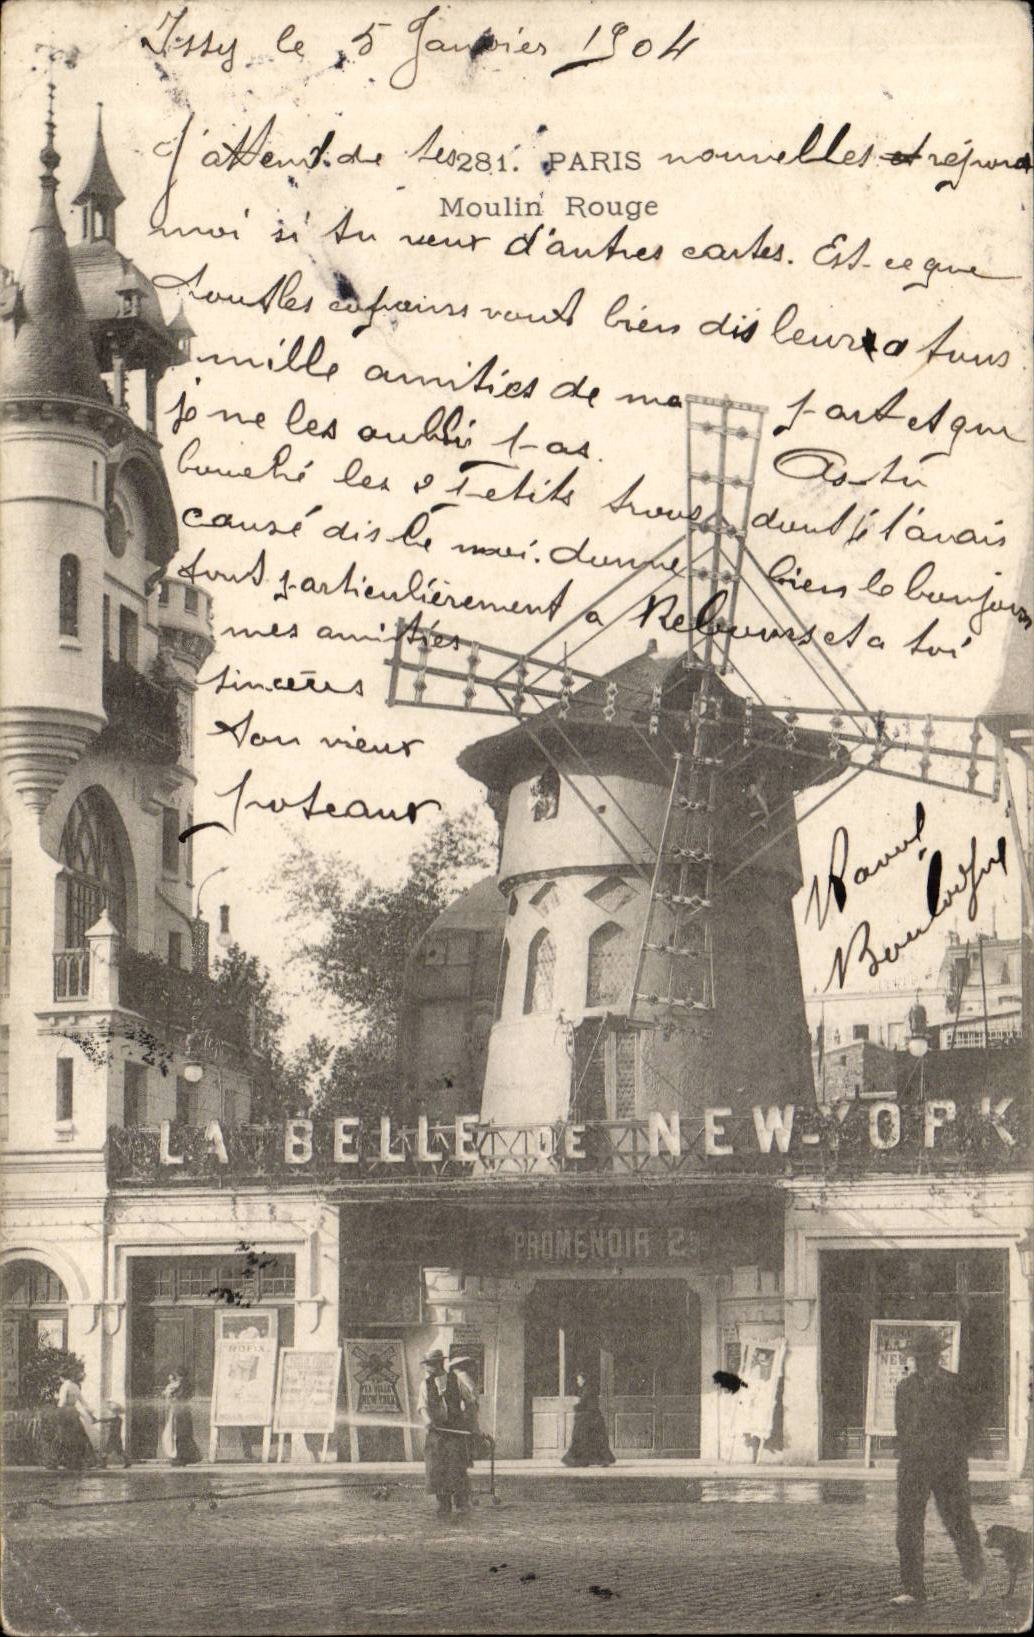 Issy le 5 Janvier 1904
J'attend de tes nouvelles et répond
281. PARIS
Moulin Rouge
moi si tu veux d'autres cartes. Est-ce que
tout les copains vont bien dis leur a tous
mille amitiés de ma part et que
je ne les oubli pas. As-tu
bouché les 2 Petits trous dont je t'avais
causé dis le moi. donne bien le bonjour
tout particulièrement a Rebours et a toi
mes amitiés
sincères
ton vieux
poteaux
Raoul
LA BELLE DE NEW-YORK
PROMENOIR 2
NEW